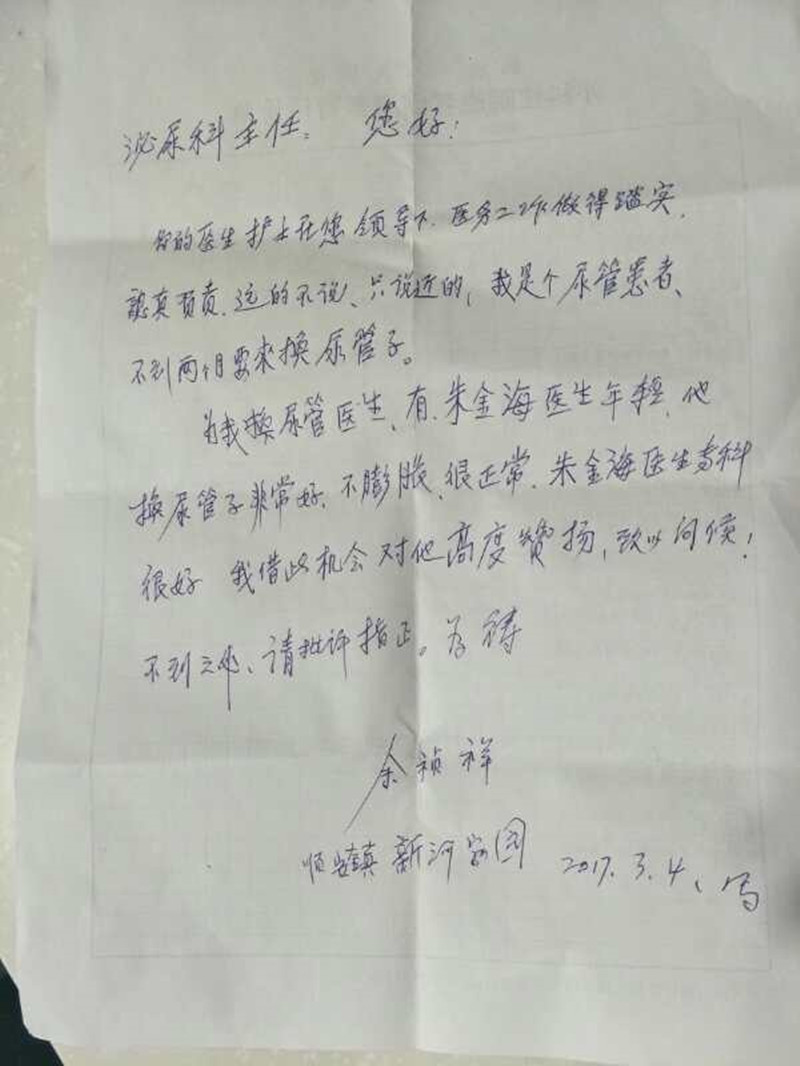 泌尿科主任：您好！
你的医生护士在您领导下.医务工作做得踏实.
認真负责.远的不说、只说近的,我是个尿管患者、
不到两个月要来换尿管子。
为我换尿管医生、有.朱金海医生年轻.他
换尿管子非常好.不膨胀、很正常.朱金海医生专科
很好 我借此机会对他高度赞扬,致以问候!
不到之处、请批评指正。为祷
余祯祥
顺安镇新河家园 2017.3.4、写